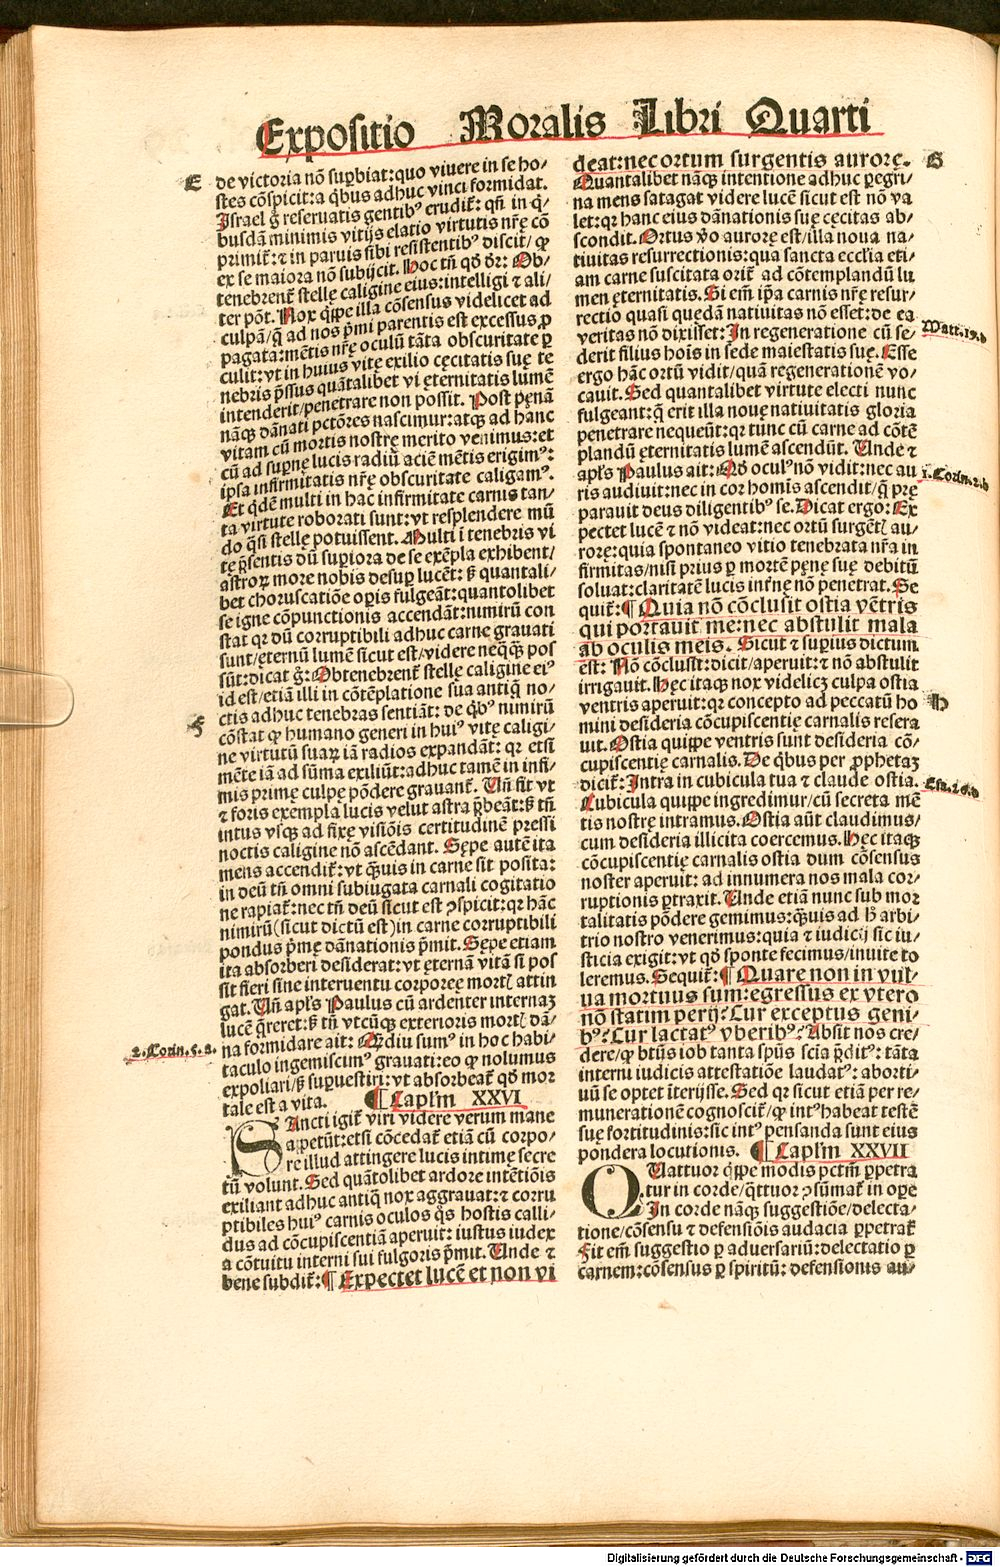 Expositio Moralis Libri Quarti
E
de victoria nō suꝑbiat:quo vivere in se ho-
stes cōspicit:a q̄bus adhuc vinci formidat.
Israel g̊ reservatis gentibꝰ erudit᷑: qñ in q̄-
busdā minimis vitijs elatio virtutis nr̄ę cō
primit᷑:⁊ in parvis sibi resistentibꝰ discit/ ꝙ
ex se maiora nō subijcit. Hoc tñ qđ dr̄: Ob-
tenebrent᷑ stellę caligine eius:intelligi ⁊ ali-
ter pōt. Nox q̄ppe illa cōsensus videlicet ad
culpā/q̄ ad nos pͥmi parentis est excessus ꝓ
pagata:mētis nr̄ę oculū tāta obscuritate ꝑ
culit:vt in huius vitę exilio cęcitatis suę te
nebris p̄ssus quātalibet vi ęternitatis lumē
intenderit/penetrare non possit. Post pęnā
nāqꝫ dānati pctōres nascimur:atqꝫ ad hanc
vitam cū mortis nostrę merito venimus:et
cū ad supnę lucis radiū aciē mētis erigimꝰ:
ipsa infirmitatis nr̄ę obscuritate caligamꝰ.
Et q̄dē multi in hac infirmitate carnis tan-
ta virtute roborati sunt:vt resplendere mū
do q̄si stellę potuissent. Multi ī tenebris vi
tę p̄sentis dū suꝑiora de se exēpla exhibent/
astroꝝ more nobis desuꝑ lucēt: sꝫ quantali-
bet choruscatiōe oꝑis fulgeāt:quantolibet
se igne cōpunctionis accendāt:nimirū con
stat qꝛ dū corruptibili adhuc carne gravati
sunt/ęternū lumē sicut est/videre neq̄qꝫ pos
sūt:dicat g̊: Obtenebrent᷑ stellę caligine eiꝰ
id est/etiā illi in cōtēplatione sua antiq̄ no-
F
ctis adhuc tenebras sentiāt: de q̄bꝰ nimirū
cōstat ꝙ humano generi in huiꝰ vitę caligi-
ne virtutū suaꝝ iā radios expandāt: qꝛ etsi
mēte iā ad sūma exiliūt:adhuc tamē in infi-
mis primę culpę pōdere gravant᷑. Uñ fit vt
⁊ foris exempla lucis velut astra p̄beāt:sꝫ tñ
intus vsqꝫ ad fixę visiōis certitudinē pressi
noctis caligine nō ascēdant. Sępe autē ita
mens accendit᷑:vt q̄uis in carne sit posita:
in deū tñ omni subiugata carnali cogitatio
ne rapiat᷑:nec tñ deū sicut est ꝯspicit:qꝛ hāc
nimirū(sicut dictū est)in carne corruptibili
pondus pͥmę dānationis pͥmit. Sępe etiam
ita absorberi desiderat:vt ęternā vitā si pos
sit fieri sine interventu corporeę mortꝭ attin
gat. Uñ apľs Paulus cū ardenter internaꝫ
lucē q̄reret:sꝫ tñ vtcūqꝫ exterioris mortꝭ dā-
2. Corin. 5. a.
na formidare ait: Qꝛdiu sumꝰ in hoc habi-
taculo ingemiscimꝰ gravati:eo ꝙ nolumus
expoliari/sꝫ suꝑvestiri:vt absorbeat᷑ qđ mor
tale est a vita. ¶ Capľm XXVI
SAncti igit᷑ viri videre verum mane
appetūt:etsi cōcedat᷑ etiā cū corpo-
re illud attingere lucis intimę secre
tū volunt. Sed quātolibet ardore intētiōis
exiliant adhuc antiq̄ nox aggravat:⁊ corru
ptibiles huiꝰ carnis oculos q̊s hostis calli-
dus ad cōcupiscentiā aperuit: iustus iudex
a cōtuitu interni sui fulgoris pͥmit. Unde ⁊
bene subdit᷑:¶ Expectet lucē et non vi
deat:nec ortum surgentis aurorę. G
Quantalibet nāqꝫ intentione adhuc ꝑegri-
na mens satagat videre lucē sicut est nō va
let:qꝛ hanc eius dānationis suę cęcitas ab-
scondit. Ortus v̊o aurorę est/illa nova na-
tivitas resurrectionis:qua sancta eccľia eti-
am carne suscitata orit᷑ ad cōtemplandū lu
men ęternitatis. Si em̄ ip̄a carnis nr̄ę resur-
rectio quasi quedā nativitas nō esset: de ea
veritas nō dixisset: In regeneratione cū se- Matt. 19. d
derit filius hoīs in sede maiestatis suę. Esse
ergo hāc ortū vidit/quā regenerationē vo-
cavit. Sed quantalibet virtute electi nunc
fulgeant:q̄ erit illa novę nativitatis gloria
penetrare nequeūt:qꝛ tūc cū carne ad cōtē
plandū ęternitatis lumē ascendūt. Unde ⁊
apľs Paulus ait: Qđ oculꝰ nō vidit:nec au 1. Corin. 2. b
ris audivit:nec in cor homīs ascendit/q̄ prę
paravit deus diligentibꝰ se. Dicat ergo: Ex
pectet lucē ⁊ nō videat:nec ortū surgētꝭ au-
rorę:quia spontaneo vitio tenebrata nr̄a in
firmitas/nisi prius ꝑ mortē pęnę suę debitū
soluat:claritatē lucis intᷓnę nō penetrat. Se
quit᷑:¶ Quia nō cōclusit ostia vētris
qui portavit me:nec abstulit mala
ab oculis meis. Sicut ⁊ suꝑius dictum
est: Nō cōclusit:dicit/aperuit:⁊ nō abstulit
irrigavit. Hęc itaqꝫ nox videlicꝫ culpa ostia
ventris aperuit:qꝛ concepto ad peccatū ho H
mini desideria cōcupiscentię carnalis resera
vit. Ostia quippe ventris sunt desideria cō-
cupiscentię carnalis. De q̄bus per ꝓphetaꝫ
dicit᷑: Intra in cubicula tua ⁊ claude ostia. Esa. 26. d
Cubicula quippe ingredimur/cū secreta mē
tis nostrę intramus. Ostia aūt claudimus/
cum desideria illicita coercemus. Hęc itaqꝫ
cōcupiscentię carnalis ostia dum cōsensus
noster aperuit: ad innumera nos mala cor-
ruptionis ꝑtraxit. Unde etiā nunc sub mor
talitatis pōdere gemimus:q̄uis ad hͦ arbi-
trio nostro venerimus:quia ⁊ iudicij sic iu-
sticia exigit:vt qđ sponte fecimus/invite to
leremus. Sequit᷑:¶ Quare non in vul-
va mortuus sum:egressus ex vtero
nō statim perij? Cur exceptus geni-
bꝰ? Cur lactatꝰ vberibꝰ? Absit nos cre-
dere/ꝙ bt̄us iob tanta sp̄us scīa p̄ditꝰ: tāta
interni iudicis attestatiōe laudatꝰ: aborti-
vū se optet īterijsse. Sed qꝛ sicut etiā per re-
munerationē cognoscit᷑/ꝙ intꝰ habeat testē
suę fortitudinis:sic intꝰ pensanda sunt eius
pondera locutionis. ¶ Capľm XXVII
QUattuor q̄ppe modis pctm̄ ꝑpetra
tur in corde/q̄ttuor ꝯsūmat᷑ in oꝑe
In corde nāqꝫ suggestiōe/delecta-
tione/cōsensu ⁊ defensiōis audacia ꝑpetrat᷑
Fit em̄ suggestio ꝑ adversariū:delectatio ꝑ
carnem:cōsensus ꝑ spiritū: defensionis au-
Digitalisierung gefördert durch die Deutsche Forschungsgemeinschaft - DFG